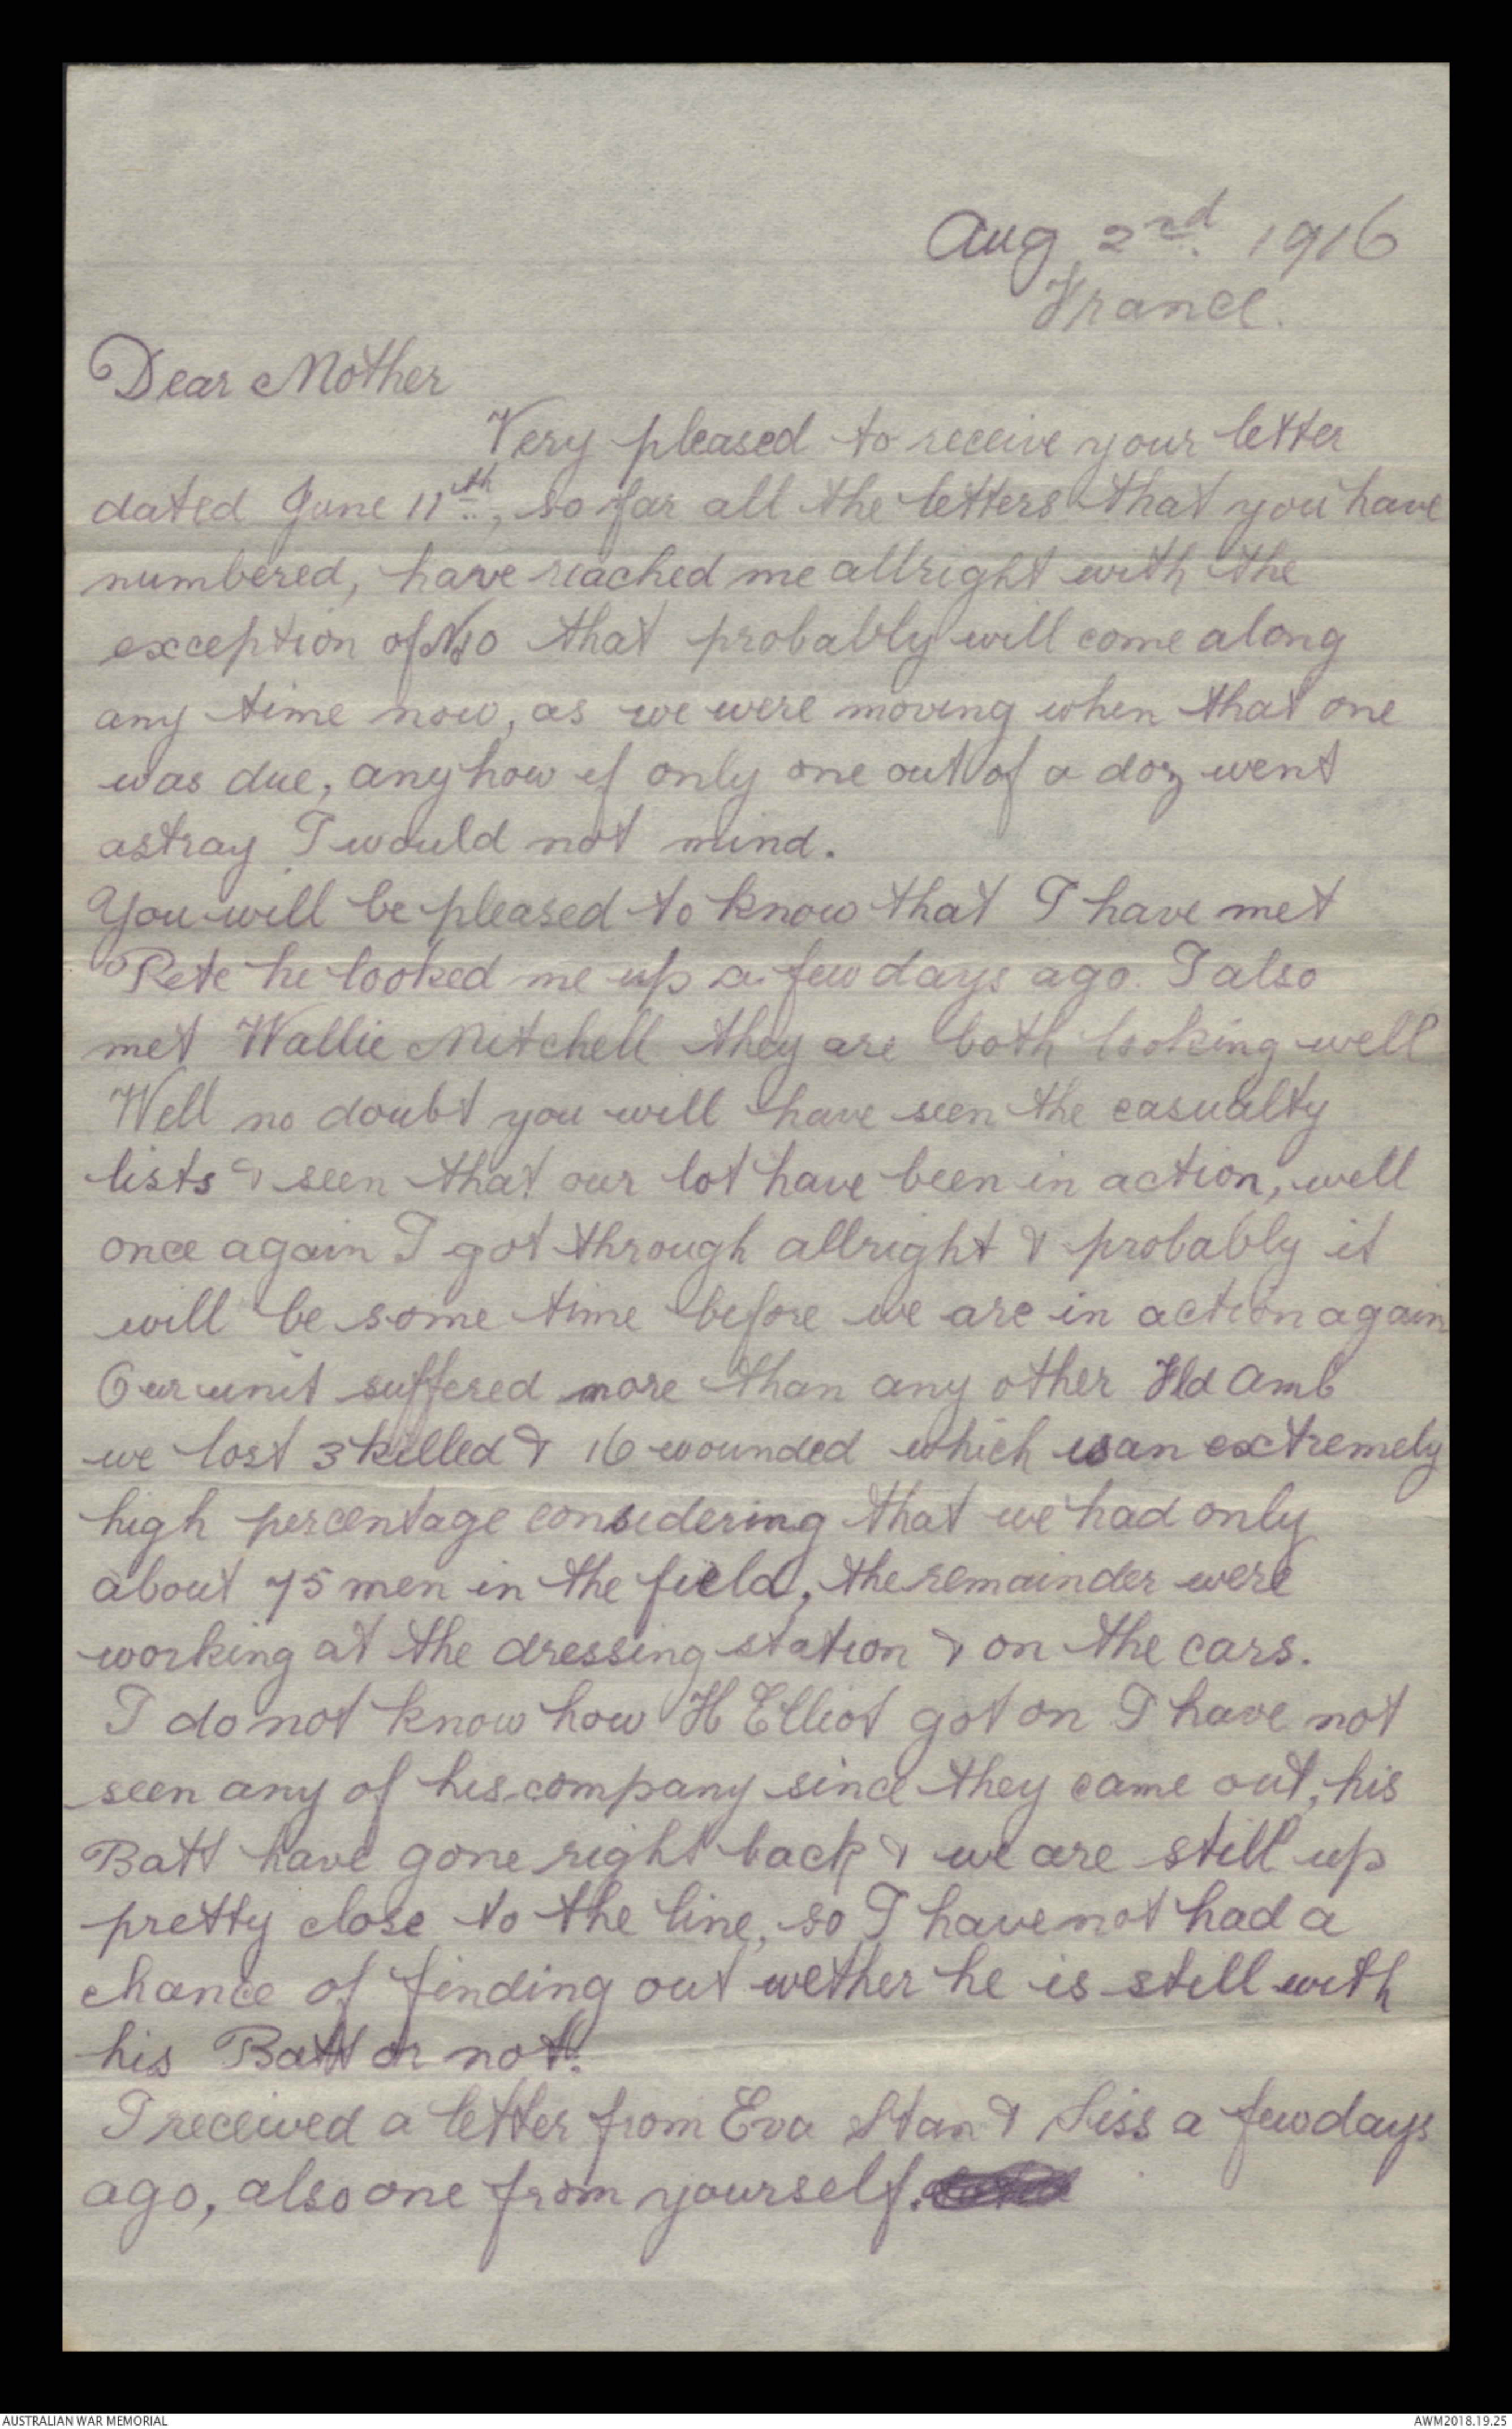 Aug 2nd. 1916
France.
Dear Mother
Very pleased to receive your letter
dated June 11th, so far all the letters that you have
numbered, have reached me allright with the
exception of that probably will come along
any time now, as we were moving when that one
was due, anyhow if only one out of a doz went
astray I would not mind.
You will be pleased to know that I have met
Pete he looked me up a few days ago. I also
met Wallie Mitchell they are both looking well
Well no doubt you will have seen the casualty
lists & seen that our lot have been in action, well
once again I got through allright & probably it
will be some time before we are in action again
Our unit suffered more than any other Fld Amb
we lost 3 killed & 16 wounded which is an extremely
high percentage considering that we had only
about 75 men in the field, the remainder were
working at the dressing station & on the cars.
I do not know how H Elliot got on I have not
seen any of his company since they came out, his
Batt have gone right back & we are still up
pretty close to the line, so I have not had a
chance of finding out wether he is still with
his Batt or not.
I received a letter from Eva Stan & Siss a few days
ago, also one from yourself.
AUSTRALIAN WAR MEMORIAL
AWM2018.19.25